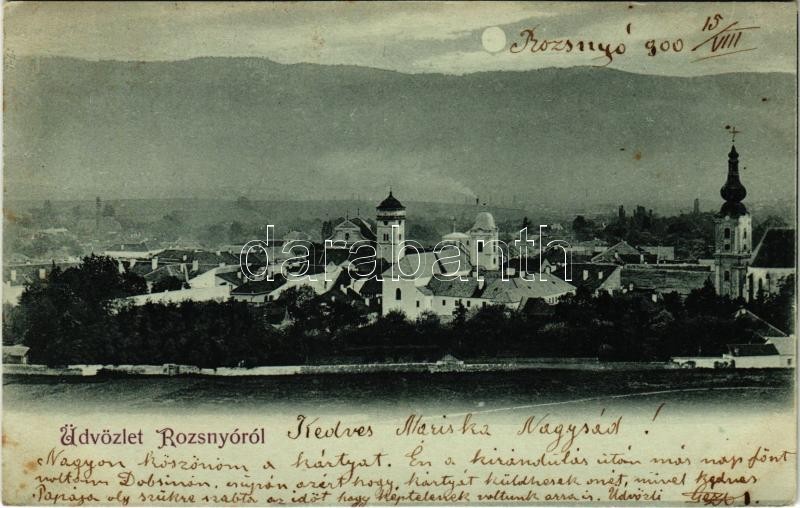 Rozsnyó 900 15/VIII
darabanth
Üdvözlet Rozsnyóról
Kedves Mariska Nagysád!
Nagyon köszönöm a kártyát. Én a kirándulás után más nap fönt
voltam Dobsinán, csupán azért hogy kártyát küldhessek onét, mivel kedves
Papája oly szűkre szabta az időt hogy képtelenek voltunk arra is. Üdvözli